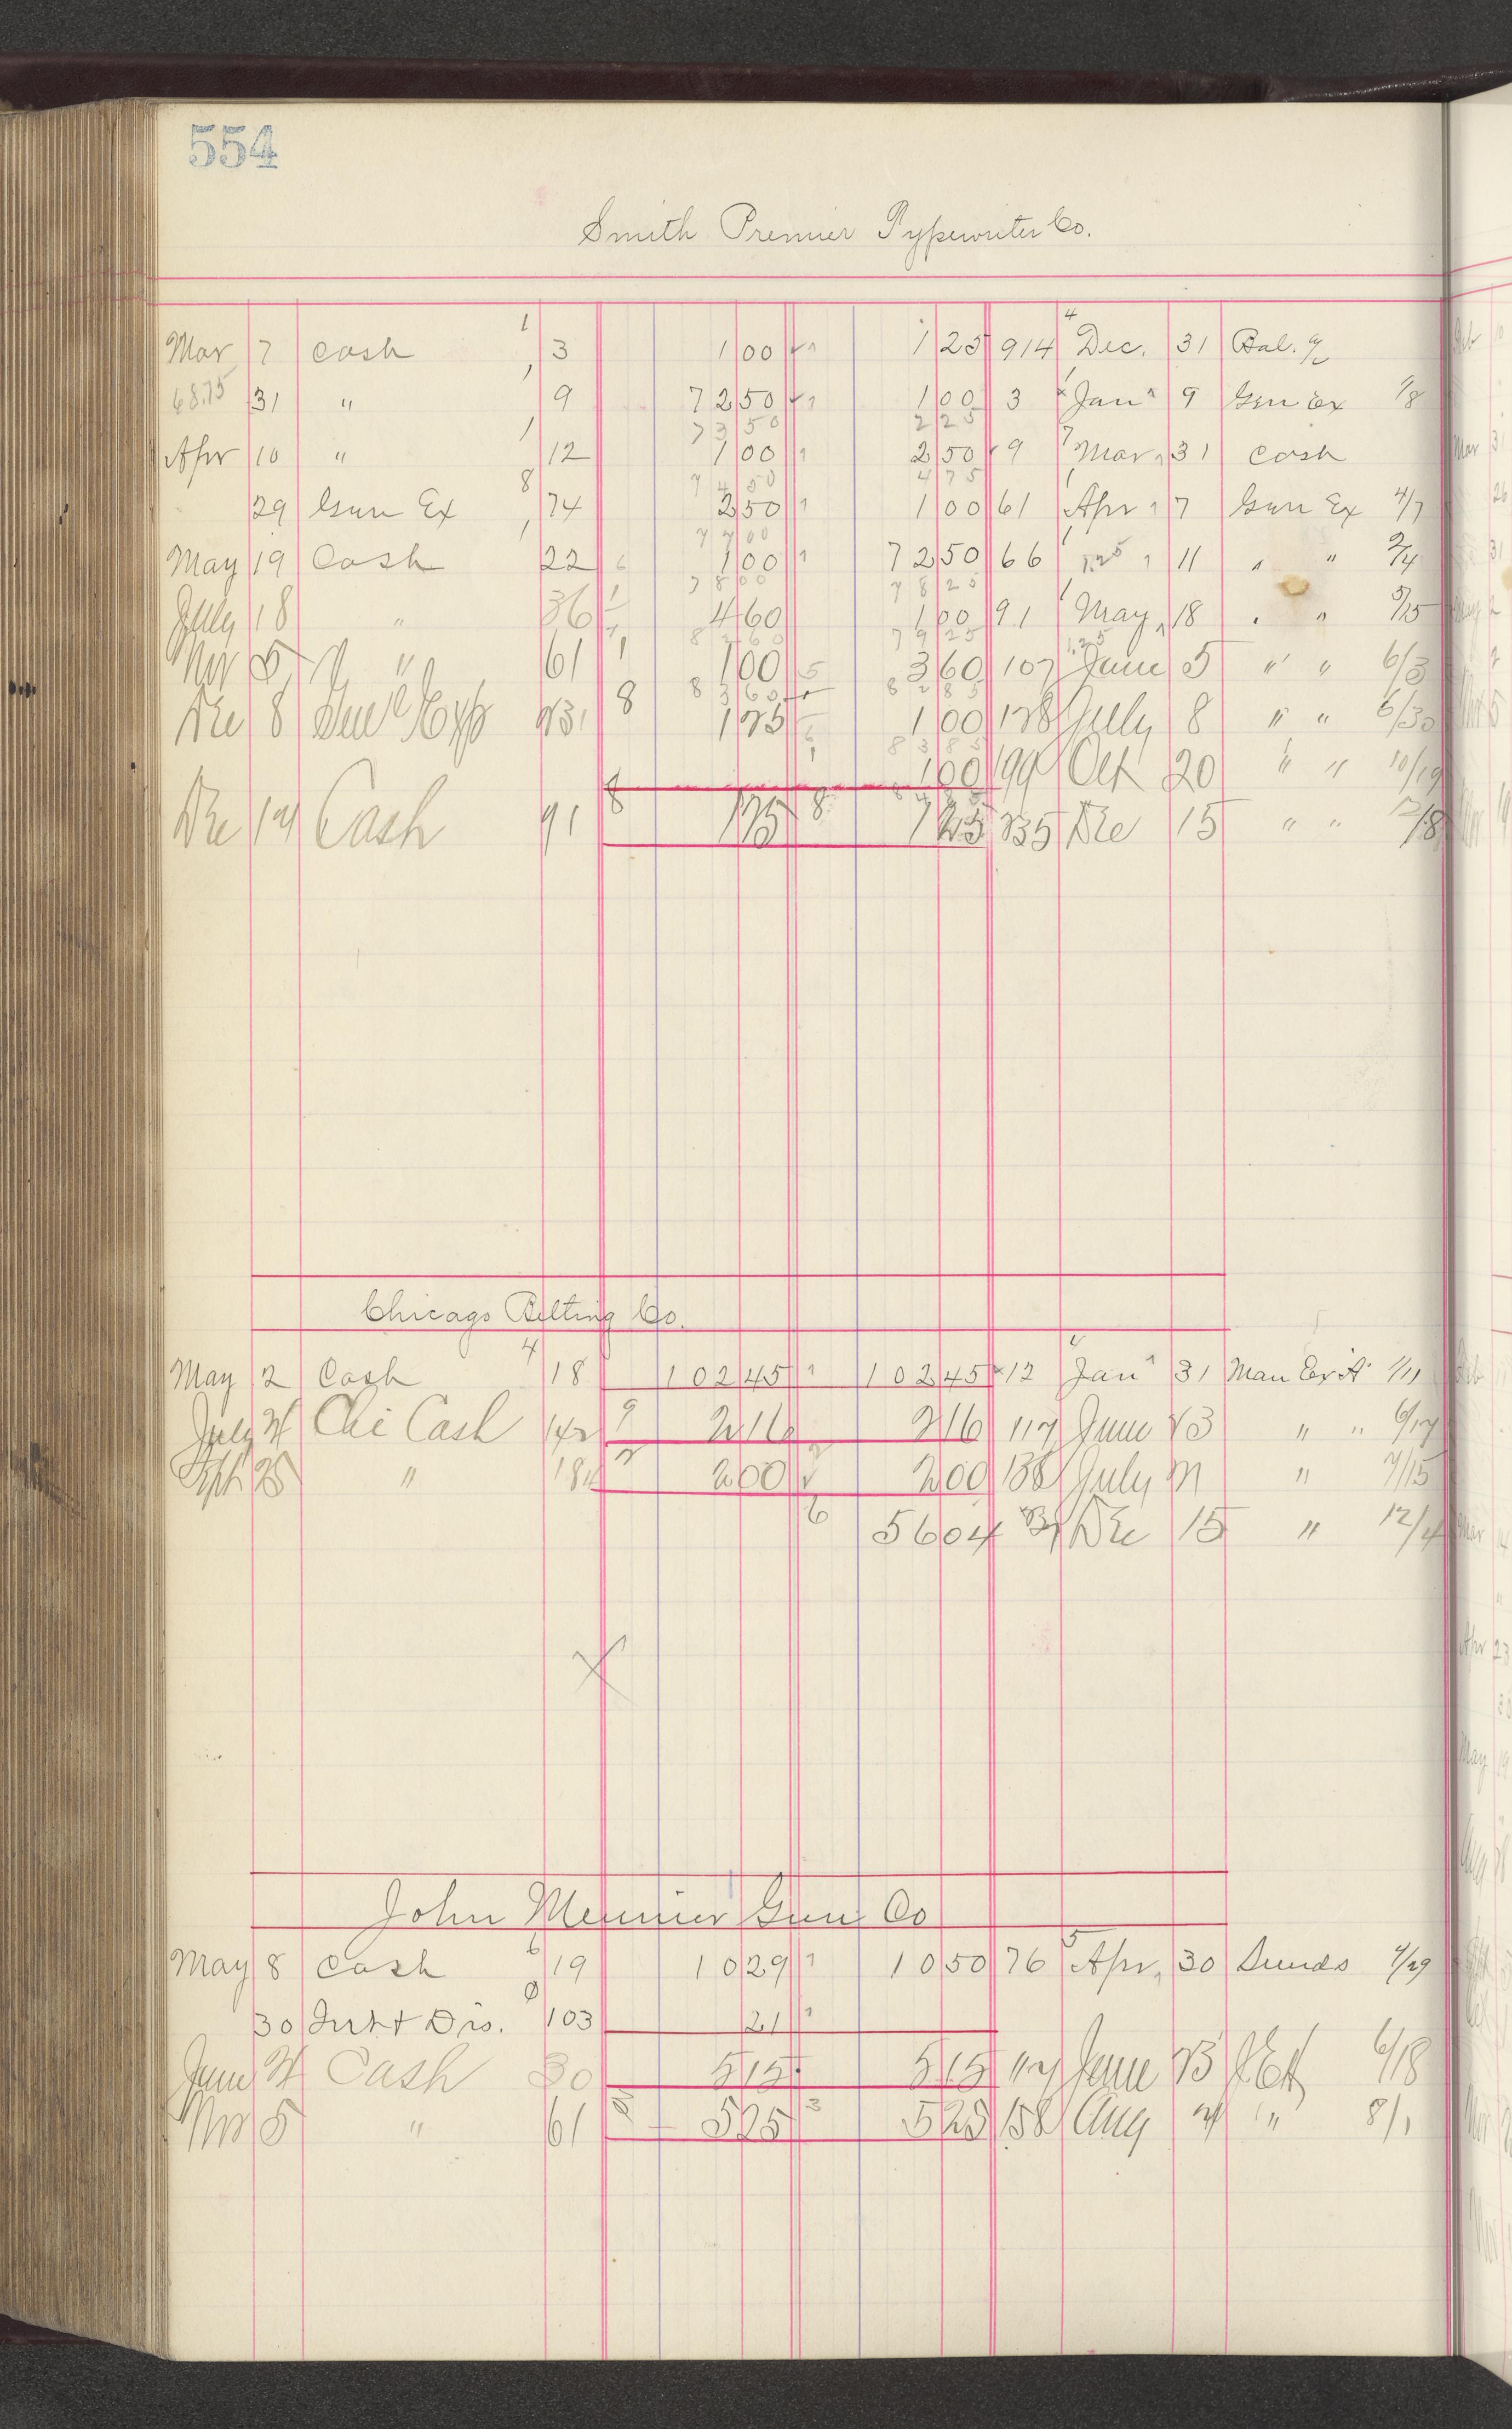 554
Smith Premier Typewriter Co.
Mar 7 Cash 1 3 1 00 1 25 914 4 Dec. 31 Bal.
68.75 31 " 9 72 50 1 00 3 Jan 9 Gen Ex 1/8
73 50 2 25
Apr 10 " 12 1 00 2 50 9 Mar 31 Cash
74 50 4 75
29 Gen Ex 8 74 2 50 1 00 61 Apr 7 Gen Ex 4/7
77 00
May 19 Cash 22 1 00 72 50 66 11 " " 2/4
78 00 78 25
July 18 " 36 4 60 1 00 91 May 18 " " 5/15
79 25
Nov 5 " 61 1 00 3 60 107 June 5 " " 6/3
83 60 82 85
Dec 8 Genl Exp 231 8 1 25 1 00 128 July 8 " " 6/30
83 85
1 00 199 Oct 20 " " 10/19
Dec 14 Cash 91 8 1 25 8 1 25 235 Dec 15 " " 12/8
Chicago Belting Co.
May 2 Cash 4 18 102 45 102 45 12 Jan 31 Man Ex A 1/11
July 21 Chi Cash 142 9 2 16 2 16 117 June 23 " " 6/17
Sept 25 " 2 2 00 2 00 138 July 21 " 7/15
6 56 04 Dec 15 " 12/4
John Meunier Gun Co
May 8 Cash 6 19 10 29 10 50 76 5 Apr. 30 Sunds 4/29
30 Int & Dis. 103 21
June 21 Cash 30 5 15 5 15 117 June 23 6/18
Nov 5 " 61 5 25 3 5 25 158 Aug 21 " 8/1